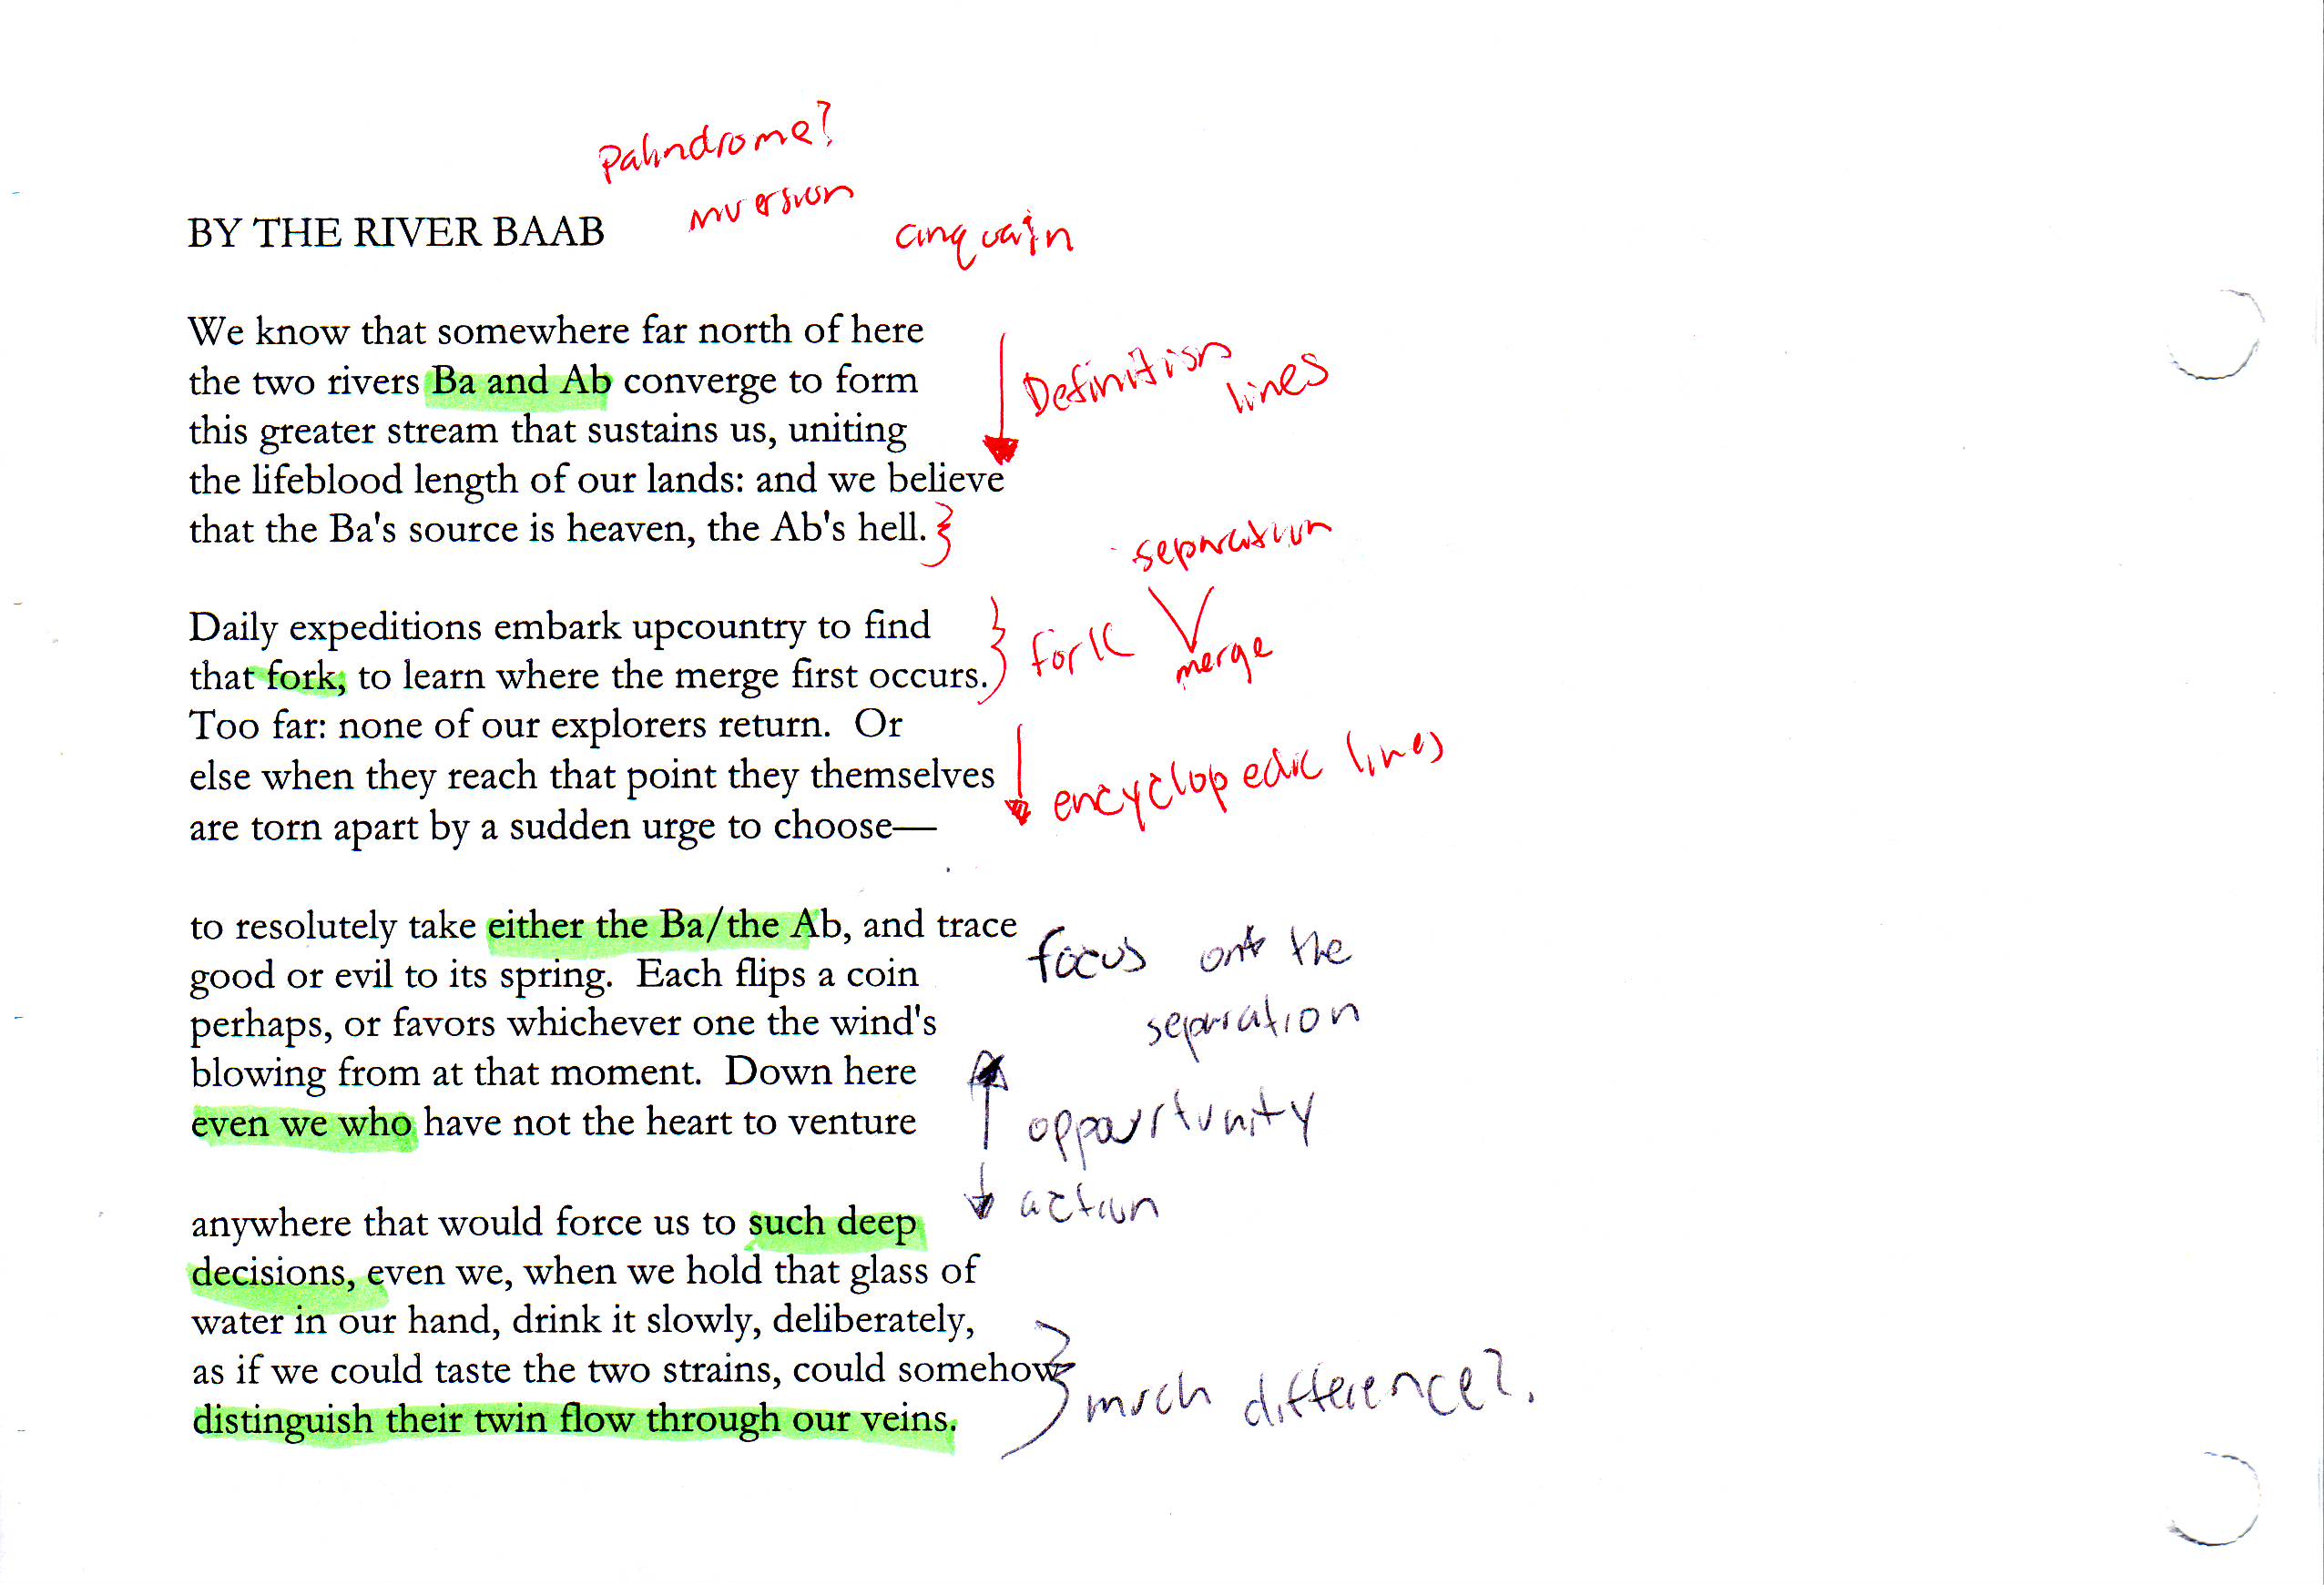 palindrome?
inversion
cinquain
BY THE RIVER BAAB
We know that somewhere far north of here
the two rivers Ba and Ab converge to form
this greater stream that sustains us, uniting
the lifeblood length of our lands: and we believe
that the Ba's source is heaven, the Ab's hell.
Definition
lines
separation
Daily expeditions embark upcountry to find
that fork, to learn where the merge first occurs.
Too far: none of our explorers return.  Or
else when they reach that point they themselves
are torn apart by a sudden urge to choose—
fork
merge
encyclopedic lines
to resolutely take either the Ba/the Ab, and trace
good or evil to its spring.  Each flips a coin
perhaps, or favors whichever one the wind's
blowing from at that moment.  Down here
even we who have not the heart to venture
focus the
separation
oppourtunity
action
anywhere that would force us to such deep
decisions, even we, when we hold that glass of
water in our hand, drink it slowly, deliberately,
as if we could taste the two strains, could somehow
distinguish their twin flow through our veins.
much difference?.